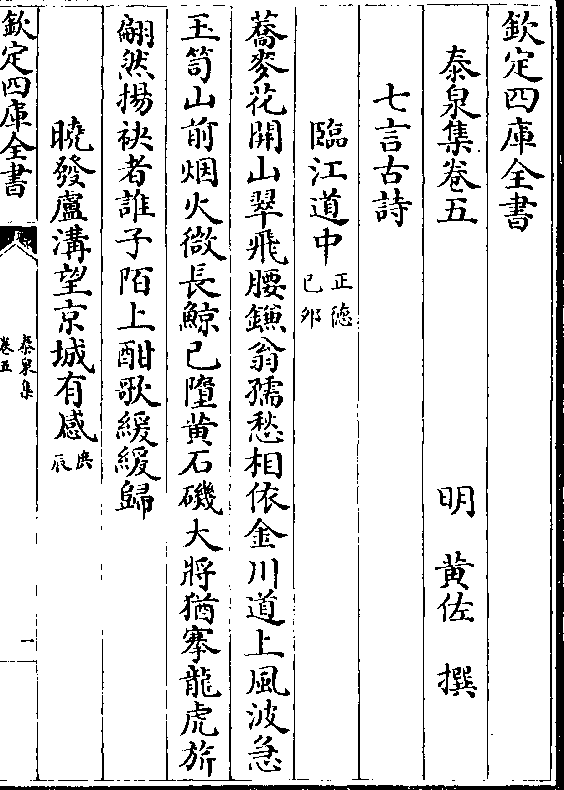 欽定四庫全書
泰泉集卷五
明 黃佐 撰
七言古詩
臨江道中 正德己卯
蕎麥花開山翠飛腰鐮翁孺愁相依金川道上風波急
玉笥山前烟火微長鯨已墮黄石磯大將猶搴龍虎旂
翩然揚袂者誰子陌上酣歌緩緩歸
曉發盧溝望京城有感 庚辰
欽定四庫全書
泰泉集
卷五
一